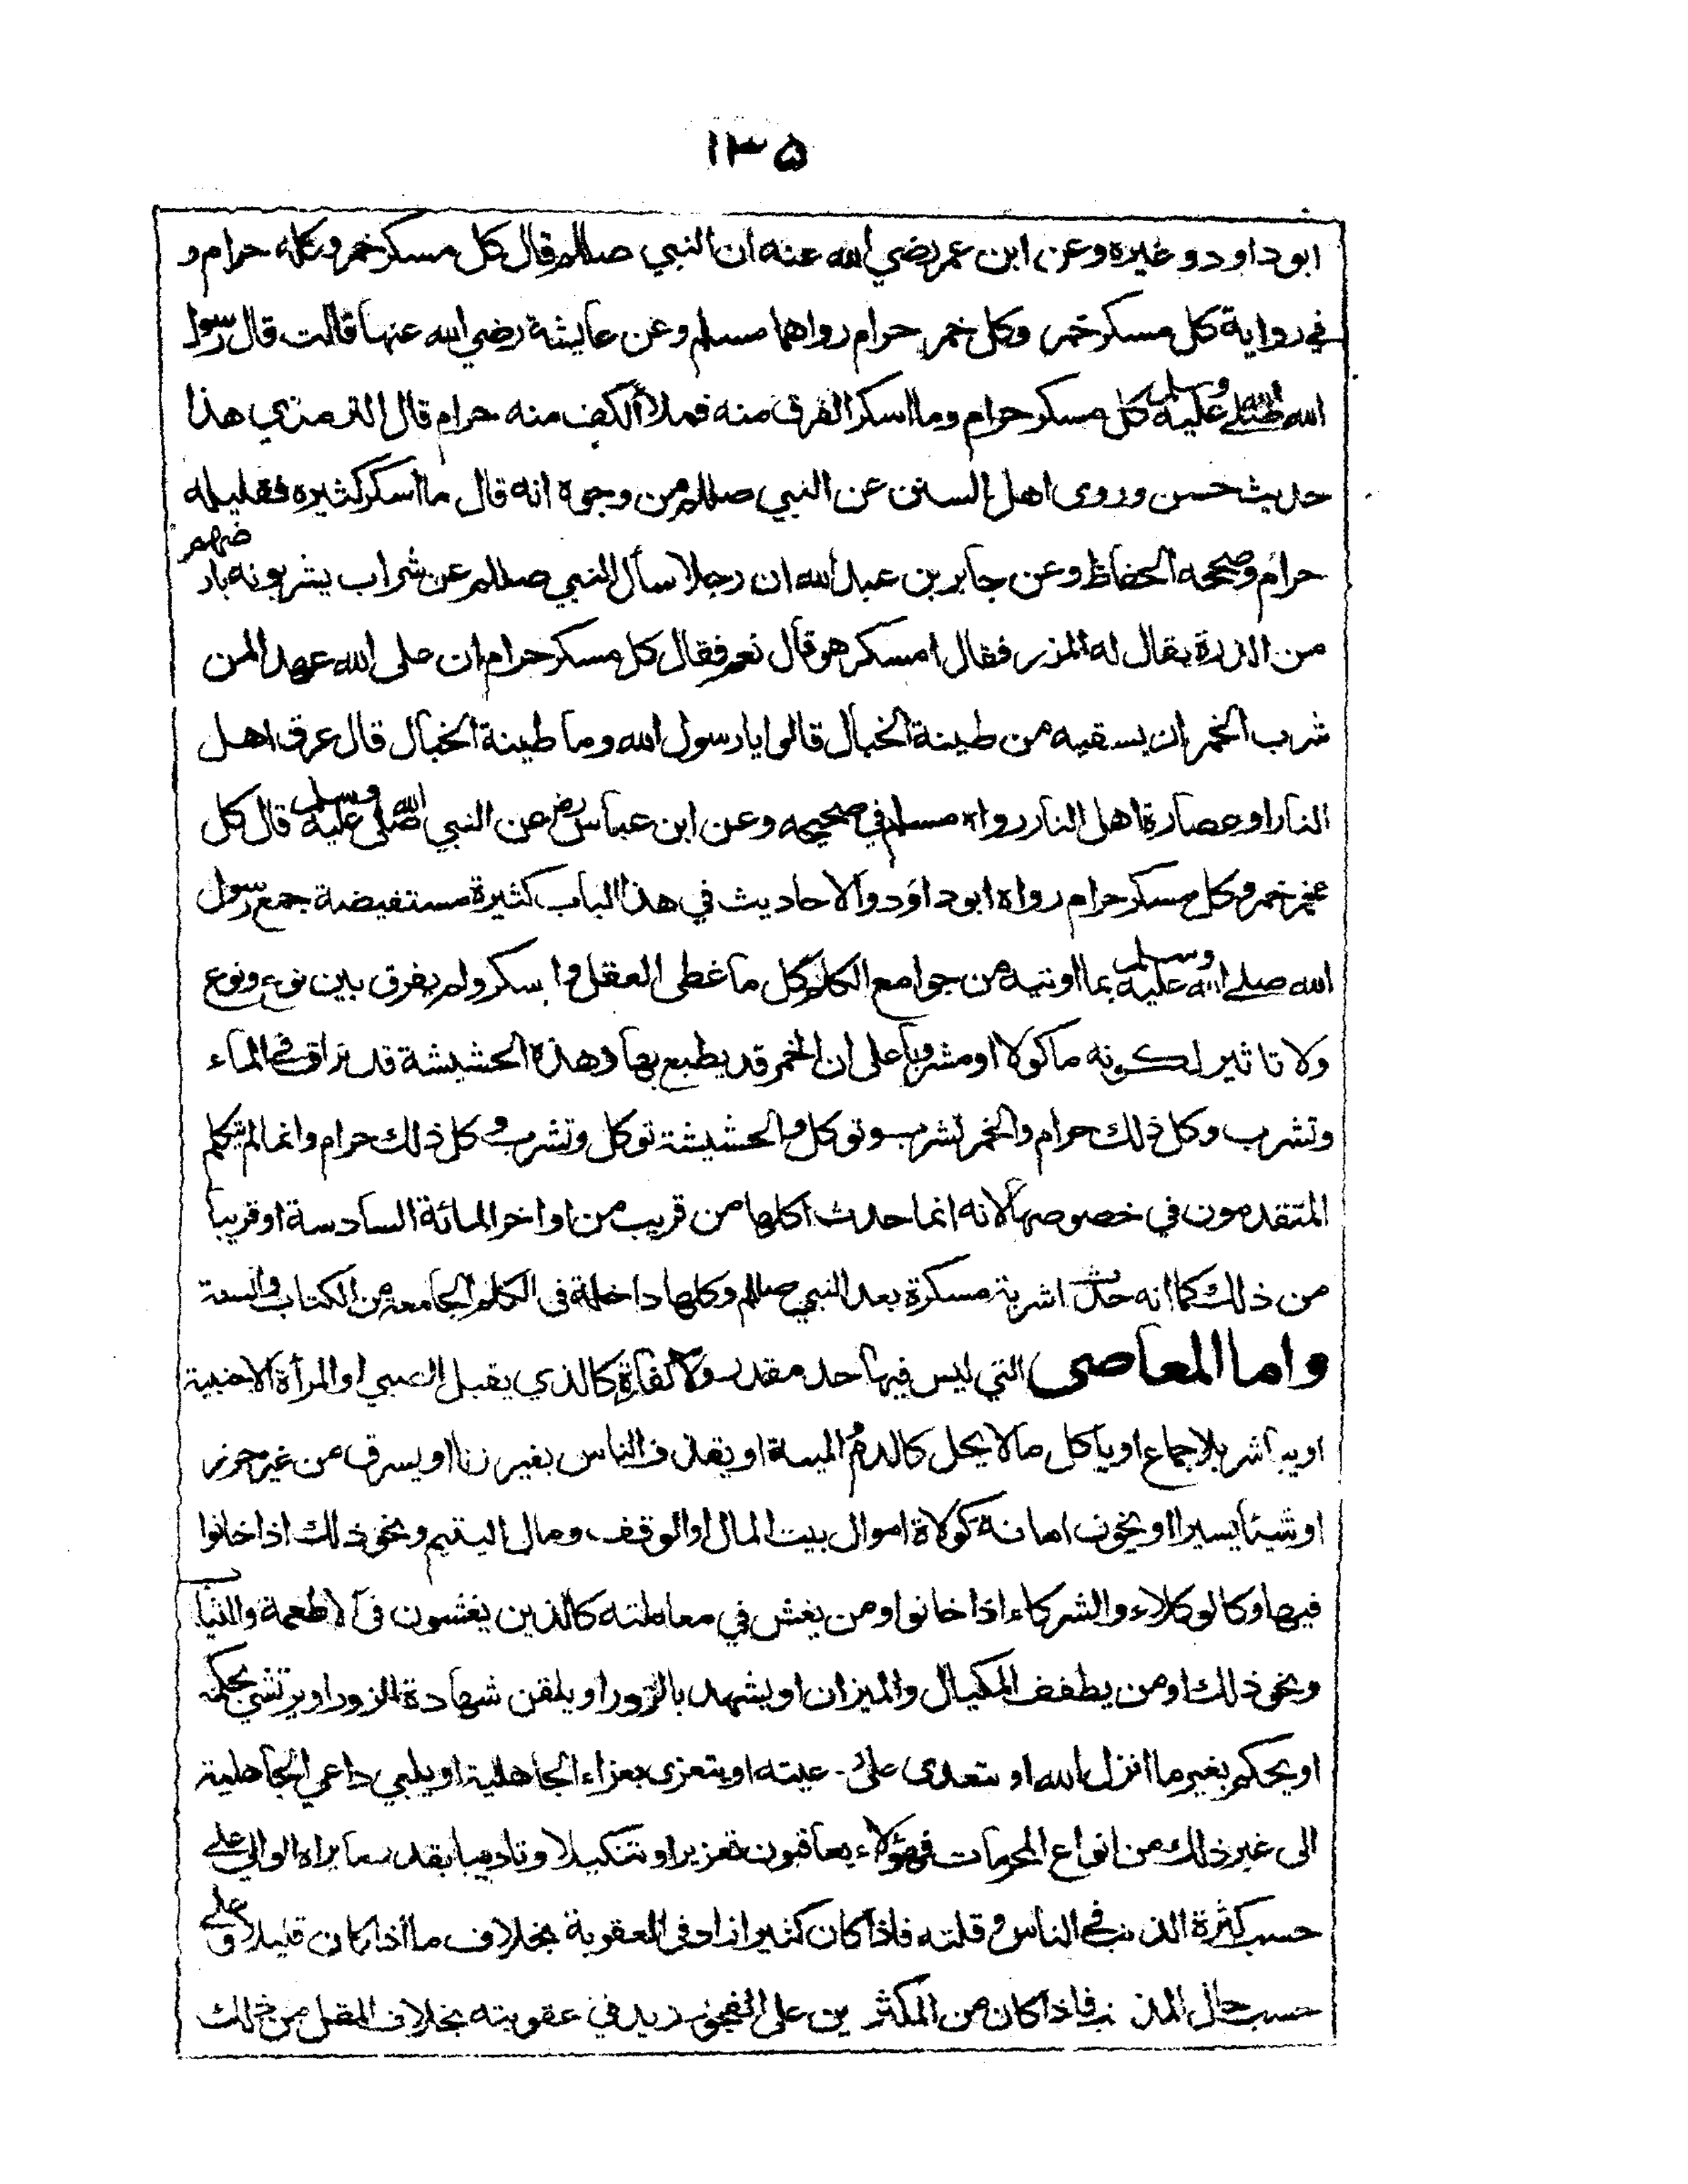 ١٣٥
ابو داود و غيره وعن ابن عمر رضي الله عنه ان النبي صللم قال كل مسكر خمر وكله حرام و
في رواية كل مسكر خمر وكل خمر حرام رواهما مسلم وعن عايشة رضي الله عنها قالت قال رسول
الله صلے الله عليه وسلم كل مسكر حرام وما اسكر الفرق منه فملأ الكف منه حرام قال الترمذي هذا
حديث حسن وروى اهل السنن عن النبي صللم من وجوه انه قال ما اسكر كثيره فقليله
حرام وصححه الحفاظ وعن جابر بن عبد الله ان رجلا سأل النبي صللم عن شراب يشربونه بارضهم
من الذرة يقال له المزر فقال امسكر هو قال نعم فقال كل مسكر حرام ان على الله عهد المن
شرب الخمر ان يسقيه من طينة الخبال قالوا يا رسول الله وما طينة الخبال قال عرق اهل
النار او عصارة اهل النار رواه مسلم في صحيحه وعن ابن عباس رض عن النبي صلى الله عليه وسلم قال كل
مخمر خمر وكل مسكر حرام رواه ابو داود والاحاديث في هذا الباب كثيرة مستفيضة جمع رسول
الله صلے الله عليه وسلم بما اوتيه من جوامع الكلم كل ما غطى العقل وا سكر ولم يفرق بين نوع ونوع
ولا تاثير لكونه ماكولا او مشروبا على ان الخمر قد يطبع بها وهذه الحشيشة قد تراق في الماء
وتشرب وكل ذلك حرام والخمر تشرب وتوكل والحشيشة توكل وتشرب و كل ذلك حرام وانما لم يتكلم
المتقدمون في خصوصها لانه انما حدث اكلها من قريب من اواخر المائة السادسة او قريبا
من ذلك كما انه حدث اشربة مسكرة بعد النبي صللم وكلها داخلة في الكلم الجامعة من الكتاب والسنة
واما المعاصى التي ليس فيها حد مقدر ولا كفارة كالذي يقبل الصبي او المرأة الاجنبية
او يباشر بلا جماع او ياكل ما لا يحل كالدم و الميتة او يقذف الناس بغير زنا او يسرق من غير حرز
او شيئا يسيرا او يخون امانة كولاة اموال بيت المال او الوقف ومال اليتيم ونحو ذلك اذا خانوا
فيها وكالوكلاء والشركاء اذا خانوا ومن يغش في معاملته كالذين يغشون في الاطعمة والثياب
ونحو ذلك او من يطفف المكيال والميزان او يشهد بالزور او يلقن شهادة الزور او يرتشي بحكمه
او يحكم بغير ما انزل الله او يتعدى على رعيته او يتعزى بعزاء الجاهلية او يلبي داعي الجاهلية
الى غير ذلك من انواع المحرمات فهؤلاء يعاقبون تعزيرا و تنكيلا وتاديبا بقدر ما يراه الوالي علے
حسب كثرة الذنب في الناس و قلته فاذا كان كثيرا زاد في العقوبة بخلاف ما اذا كان قليلا و علے
حسب حال المذنب فاذا كان من المكثرين على الفجور زيد في عقوبته بخلاف المقل من ذلك